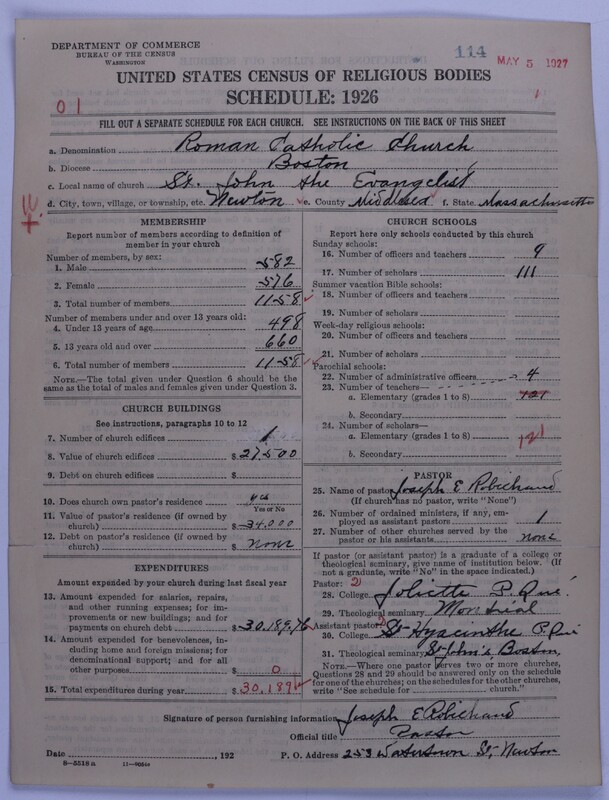 DEPARTMENT OF COMMERCE
BUREAU OF THE CENSUS
WASHINGTON
114
MAY 5 1927
UNITED STATES CENSUS OF RELIGIOUS BODIES
SCHEDULE: 1926
01
FILL OUT A SEPARATE SCHEDULE FOR EACH CHURCH. SEE INSTRUCTIONS ON THE BACK OF THIS SHEET
a. Denomination Roman Catholic Church
b. Diocese Boston
c. Local name of church St. John the Evangelist
d. City, town, village, or township, etc. Newton e. County Middlesex f. State Massachusetts
MEMBERSHIP
Report number of members according to definition of
member in your church
Number of members, by sex:
1. Male 582
2. Female 576
3. Total number of members 1158
Number of members under and over 13 years old:
4. Under 13 years of age 498
5. 13 years old and over 660
6. Total number of members 1158
NOTE.—The total given under Question 6 should be
the same as the total of males and females given under Question 3.
CHURCH BUILDINGS
See instructions, paragraphs 10 to 12
7. Number of church edifices 1
8. Value of church edifices $ 27500
9. Debt on church edifices $
10. Does church own pastor's residence yes
Yes or No
11. Value of pastor's residence (if owned by
church) $ 34,000
12. Debt on pastor's residence (if owned by
church) $ none
EXPENDITURES
Amount expended by your church during last fiscal year
13. Amount expended for salaries, repairs,
and other running expenses; for im-
provements or new buildings; and for
payments on church debt $ 30,189.76
14. Amount expended for benevolences, in-
cluding home and foreign missions; for
denominational support; and for all
other purposes $ 0
15. Total expenditures during year $ 30,189
CHURCH SCHOOLS
Report here only schools conducted by this church
Sunday schools:
16. Number of officers and teachers 9
17. Number of scholars 111
Summer vacation Bible schools:
18. Number of officers and teachers
19. Number of scholars
Week-day religious schools:
20. Number of officers and teachers
21. Number of scholars
Parochial schools:
22. Number of administrative officers 4
23. Number of teachers—
a. Elementary (grades 1 to 8) 121
b. Secondary
24. Number of scholars—
a. Elementary (grades 1 to 8) 121
b. Secondary
PASTOR
25. Name of pastor Joseph E Robichaud
(If church has no pastor, write "None")
26. Number of ordained ministers, if any, em-
ployed as assistant pastors 1
27. Number of other churches served by the
pastor or his assistants none
If pastor (or assistant pastor) is a graduate of a college or
theological seminary, give name of institution below. (If
not a graduate, write "No" in the space indicated.)
Pastor: 2
28. College Joliette P. Qué.
29. Theological seminary Montréal
Assistant pastor:
30. College St Hyacinthe P. Qué
31. Theological seminary St John's Boston.
NOTE.—Where one pastor serves two or more churches,
Questions 28 and 29 should be answered only on the schedule
for one of the churches; on the schedules for the other churches,
write "See schedule for church."
Signature of person furnishing information Joseph E Robichaud
Official title Pastor
Date , 192 P. O. Address 253 Watertown St, Newton
8—5518a 11—9054a